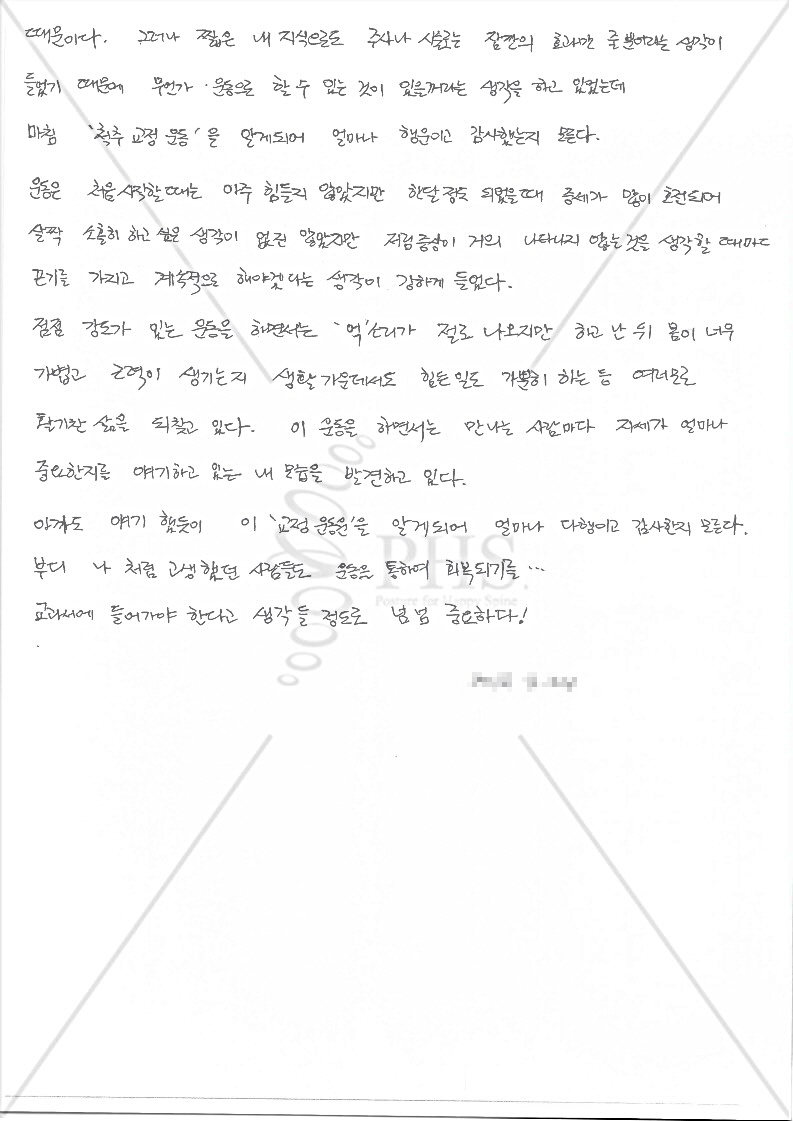 때문이다. 그러나 짧은 내 지식으로도 주사나 시술로는 잠깐의 효과만 줄 뿐이라는 생각이
들었기 때문에 무언가 운동으로 할 수 있는 것이 있을꺼라는 생각을 하고 있었는데
마침 '척추 교정 운동'을 알게되어 얼마나 행운이고 감사했는지 모른다.
운동은 처음 시작할때는 아주 힘들지 않았지만 한달 정도 되었을때 증세가 많이 호전되어
살짝 소홀히 하고 싶은 생각이 없진 않았지만 저림증상이 거의 나타나지 않는것을 생각할 때마다
끈기를 가지고 계속적으로 해야겠다는 생각이 강하게 들었다.
점점 강도가 있는 운동을 하면서는 '억'소리가 절로 나오지만 하고 난 뒤 몸이 너무
가볍고 근력이 생기는지 생활 가운데서도 힘든일도 가뿐히 하는 등 여러모로
활기찬 삶을 되찾고 있다. 이 운동을 하면서는 만나는 사람마다 자세가 얼마나
중요한지를 얘기하고 있는 내 모습을 발견하고 있다.
아까도 얘기 했듯이 이 '교정 운동운'을 알게되어 얼마나 다행이고 감사한지 모른다.
부디 나 처럼 고생했던 사람들도 운동을 통하여 회복되기를 …
교과서에 들어가야 한다고 생각들 정도로 넘 넘 중요하다!
PHS.
Posture for Happy Spine